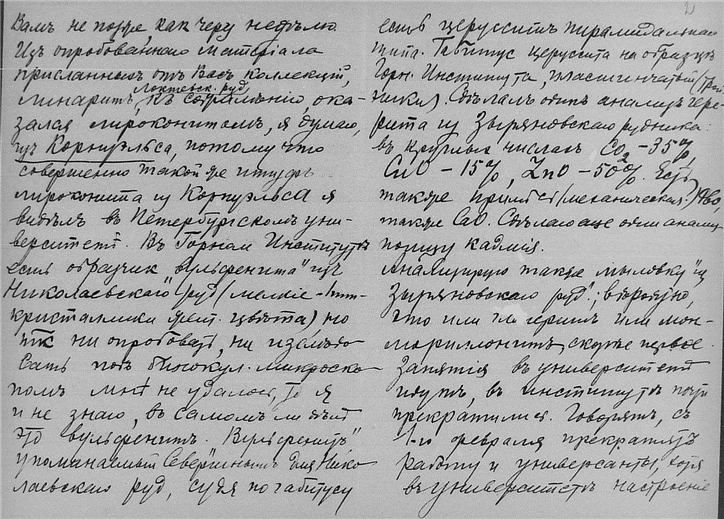 Вамъ не позже, какъ черезъ недѣлю
Изъ опробованнаго матеріала
присланныхъ отъ Васъ коллекцій,
Локтевск. руд.
линаритъ, къ сожалѣнію ока-
зался лироконитомъ, я думаю,
изъ Корнуэльса, потому что
совершенно такой же штуфъ
лироконита изъ Корнуэльса я
видѣлъ въ Петербургскомъ уни-
верситетѣ. Въ Горномъ Институтѣ
есть образчикъ „вульфенита" изъ
Николаевскаго руд. (мелкіе
кристаллики желт. цвѣта), но
такъ ни опробовать, ни измѣ
рить подъ бинокул. микроско
помъ мнѣ не удалось, то я
и не знаю, въ самомъ ли дѣлѣ
это вульфенитъ. „Вульфенитъ"
упоминаемый для Нико
лаевскаго руд., судя по габитусу
есть церусситъ пирамидальнаго
типа. Габитусъ церуссита на образцѣ
Горн. Института, пластинчатый
Сдѣлалъ одинъ анализъ
изъ Зыряновскаго рудника:
въ круглыхъ числахъ CO2 – 35%,
CaO – 15%, ZnO – 50%. Есть
также примѣсь (механическая)
также CaO. Сдѣлаю еще одинъ анализъ
поищу кадмія.
Анализирую также „мыловку" изъ
Зыряновскаго руд.; вѣроятно,
что или или мон-
мориллонитъ, скорѣе первое.
Занятія въ университетѣ
идутъ, въ институтѣ почти
прекратились. Говорятъ, съ
1-го февраля прекратятъ
работу и университеты, хотя
въ университетѣ настроеніе